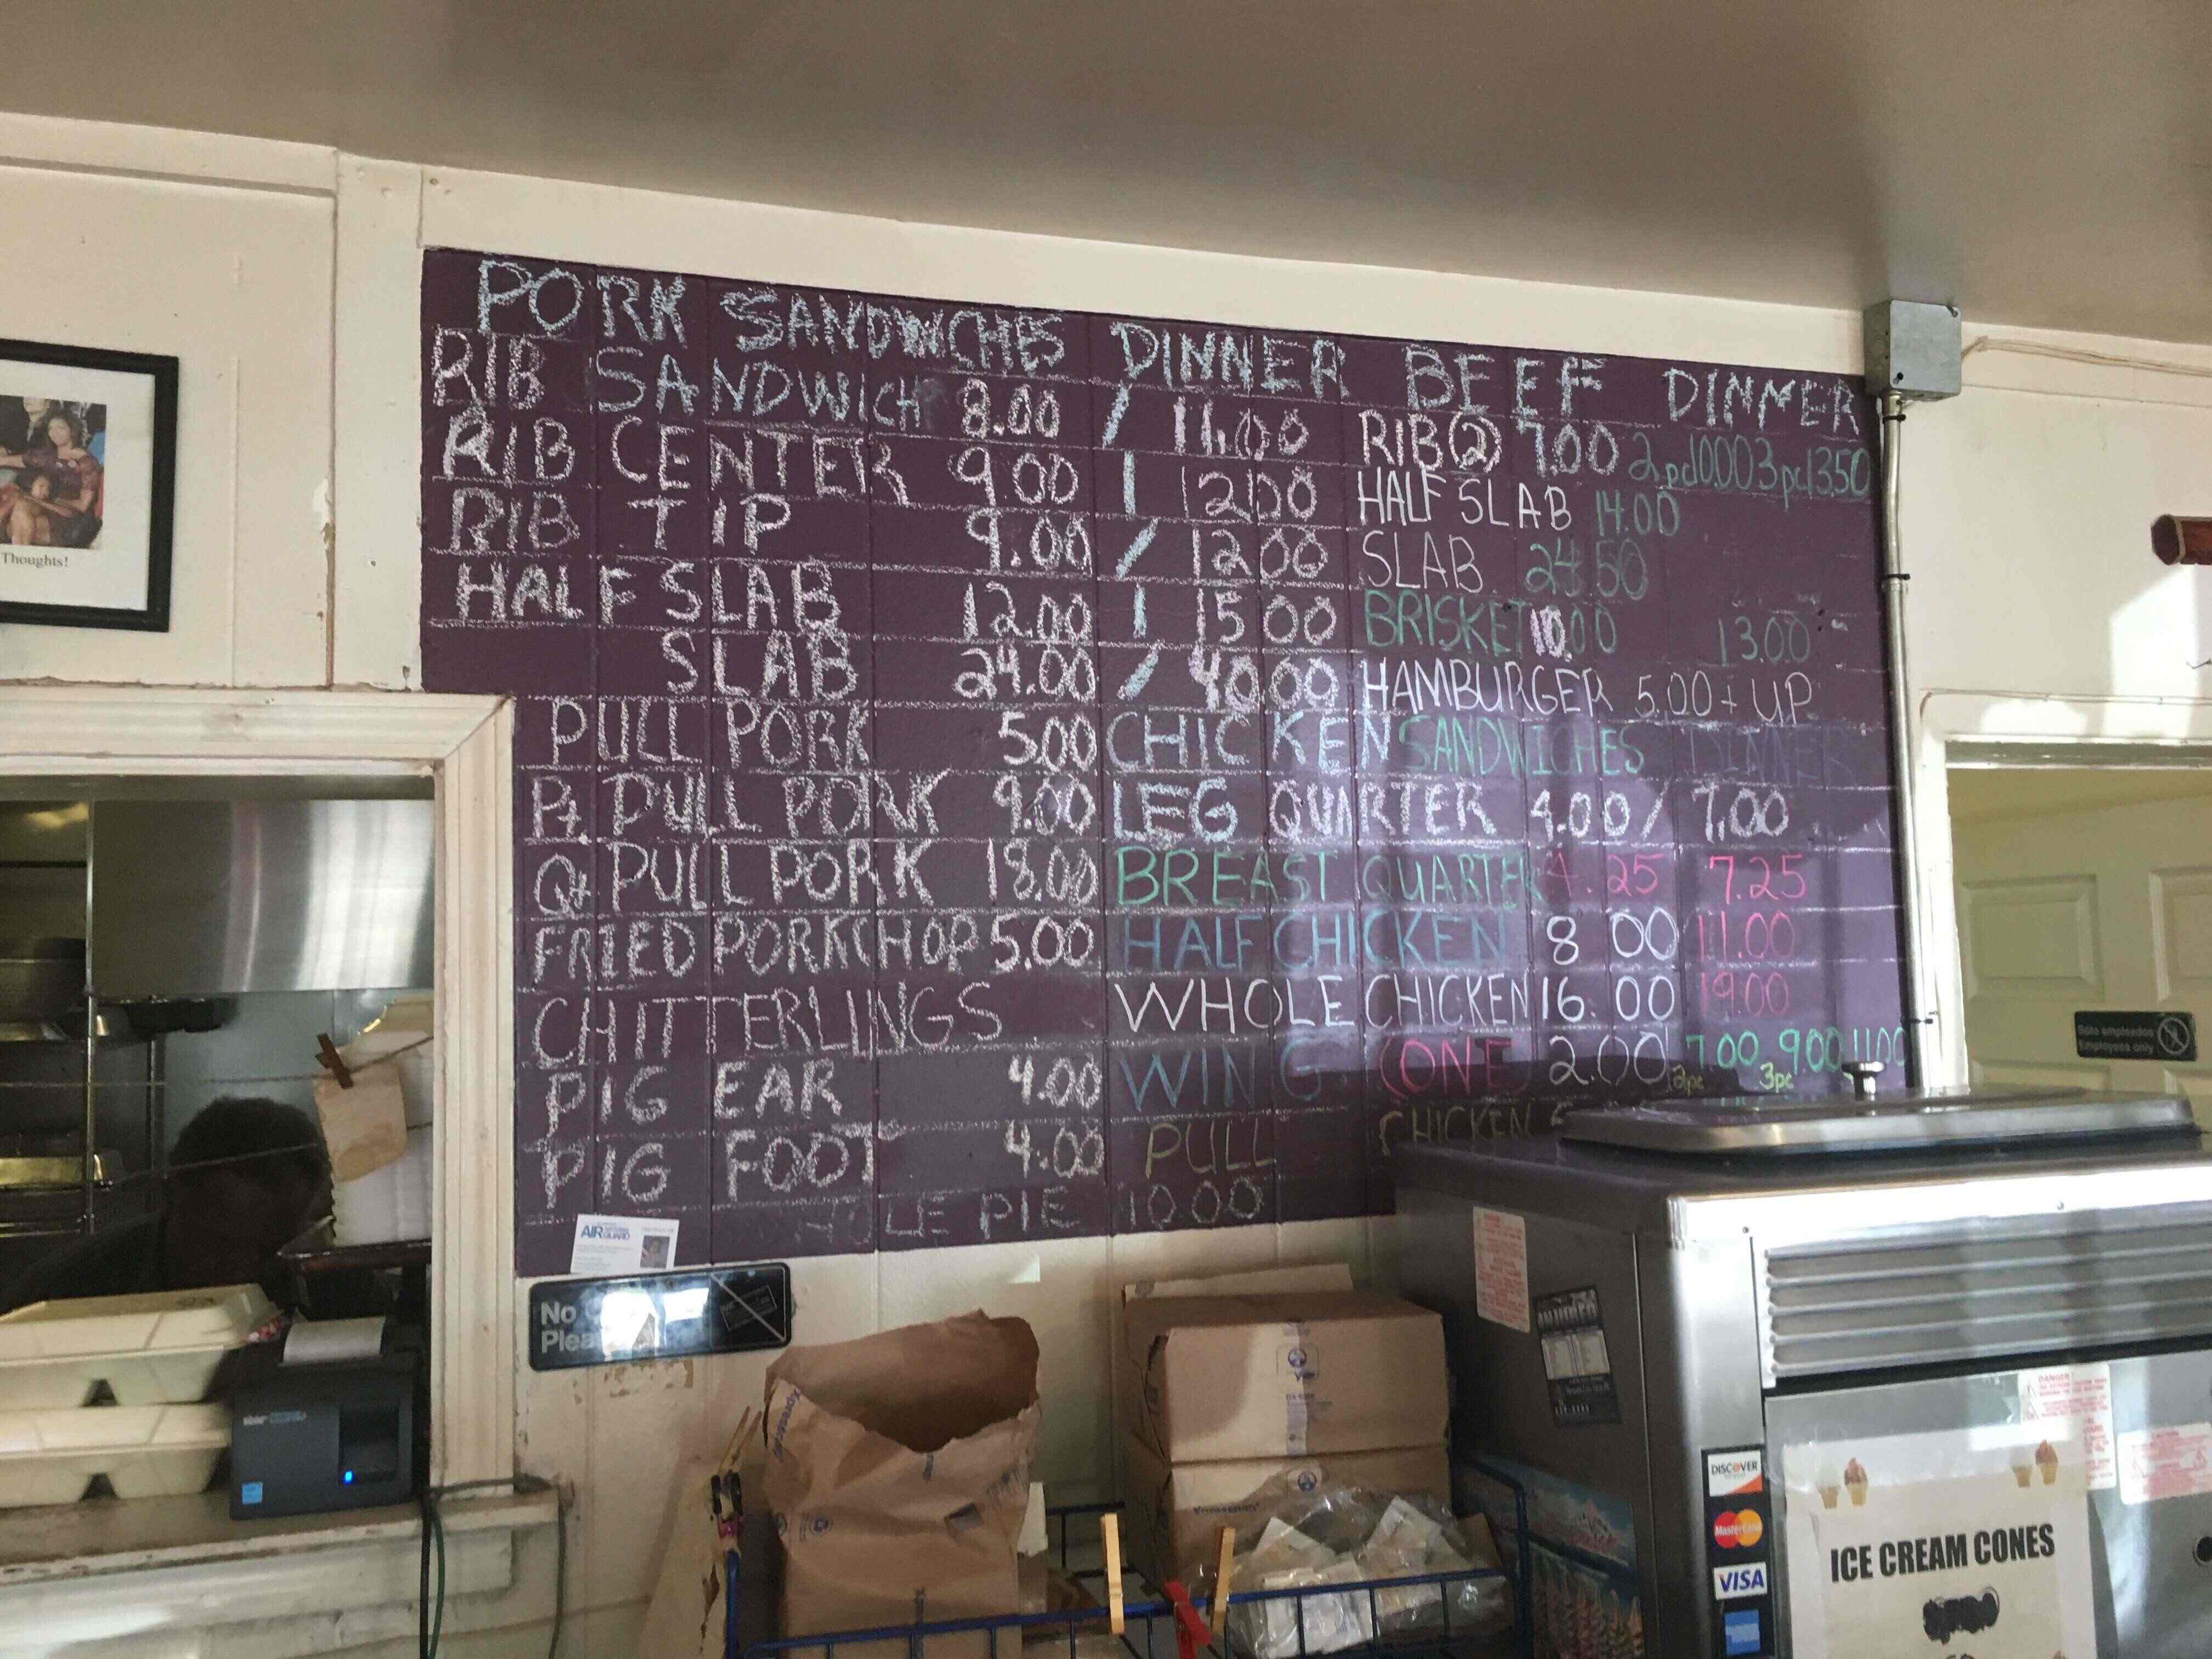 PORK SANDWICHES DINNER BEEF DINNER
RIB SANDWICH 8.00 / 11.00 RIB(2) 7.00 2pc10.00 3pc13.50
RIB CENTER 9.00 / 12.00 HALF SLAB 14.00
RIB TIP 9.00 / 12.00 SLAB 24.50
HALF SLAB 12.00 / 15.00 BRISKET 10.00 13.00
SLAB 24.00 / 40.00 HAMBURGER 5.00 + UP
PULL PORK 5.00 CHICKEN SANDWICHES DINNER
Pt. PULL PORK 9.00 LEG QUARTER 4.00 / 7.00
Qt PULL PORK 18.00 BREAST QUARTER 4.25 7.25
FRIED PORKCHOP 5.00 HALF CHICKEN 8 00 11.00
CHITTERLINGS WHOLE CHICKEN 16.00 19.00
PIG EAR 4.00 WING (ONE) 2.00 7.00 9.00 11.00
2pc 3pc
PIG FOOT 4.00 PULL CHICKEN
WHOLE PIE 10.00
Thoughts!
AIR NATIONAL GUARD
No
Sólo empleados
Employees only
DANGER
DISCOVER
MasterCard
VISA
ICE CREAM CONES